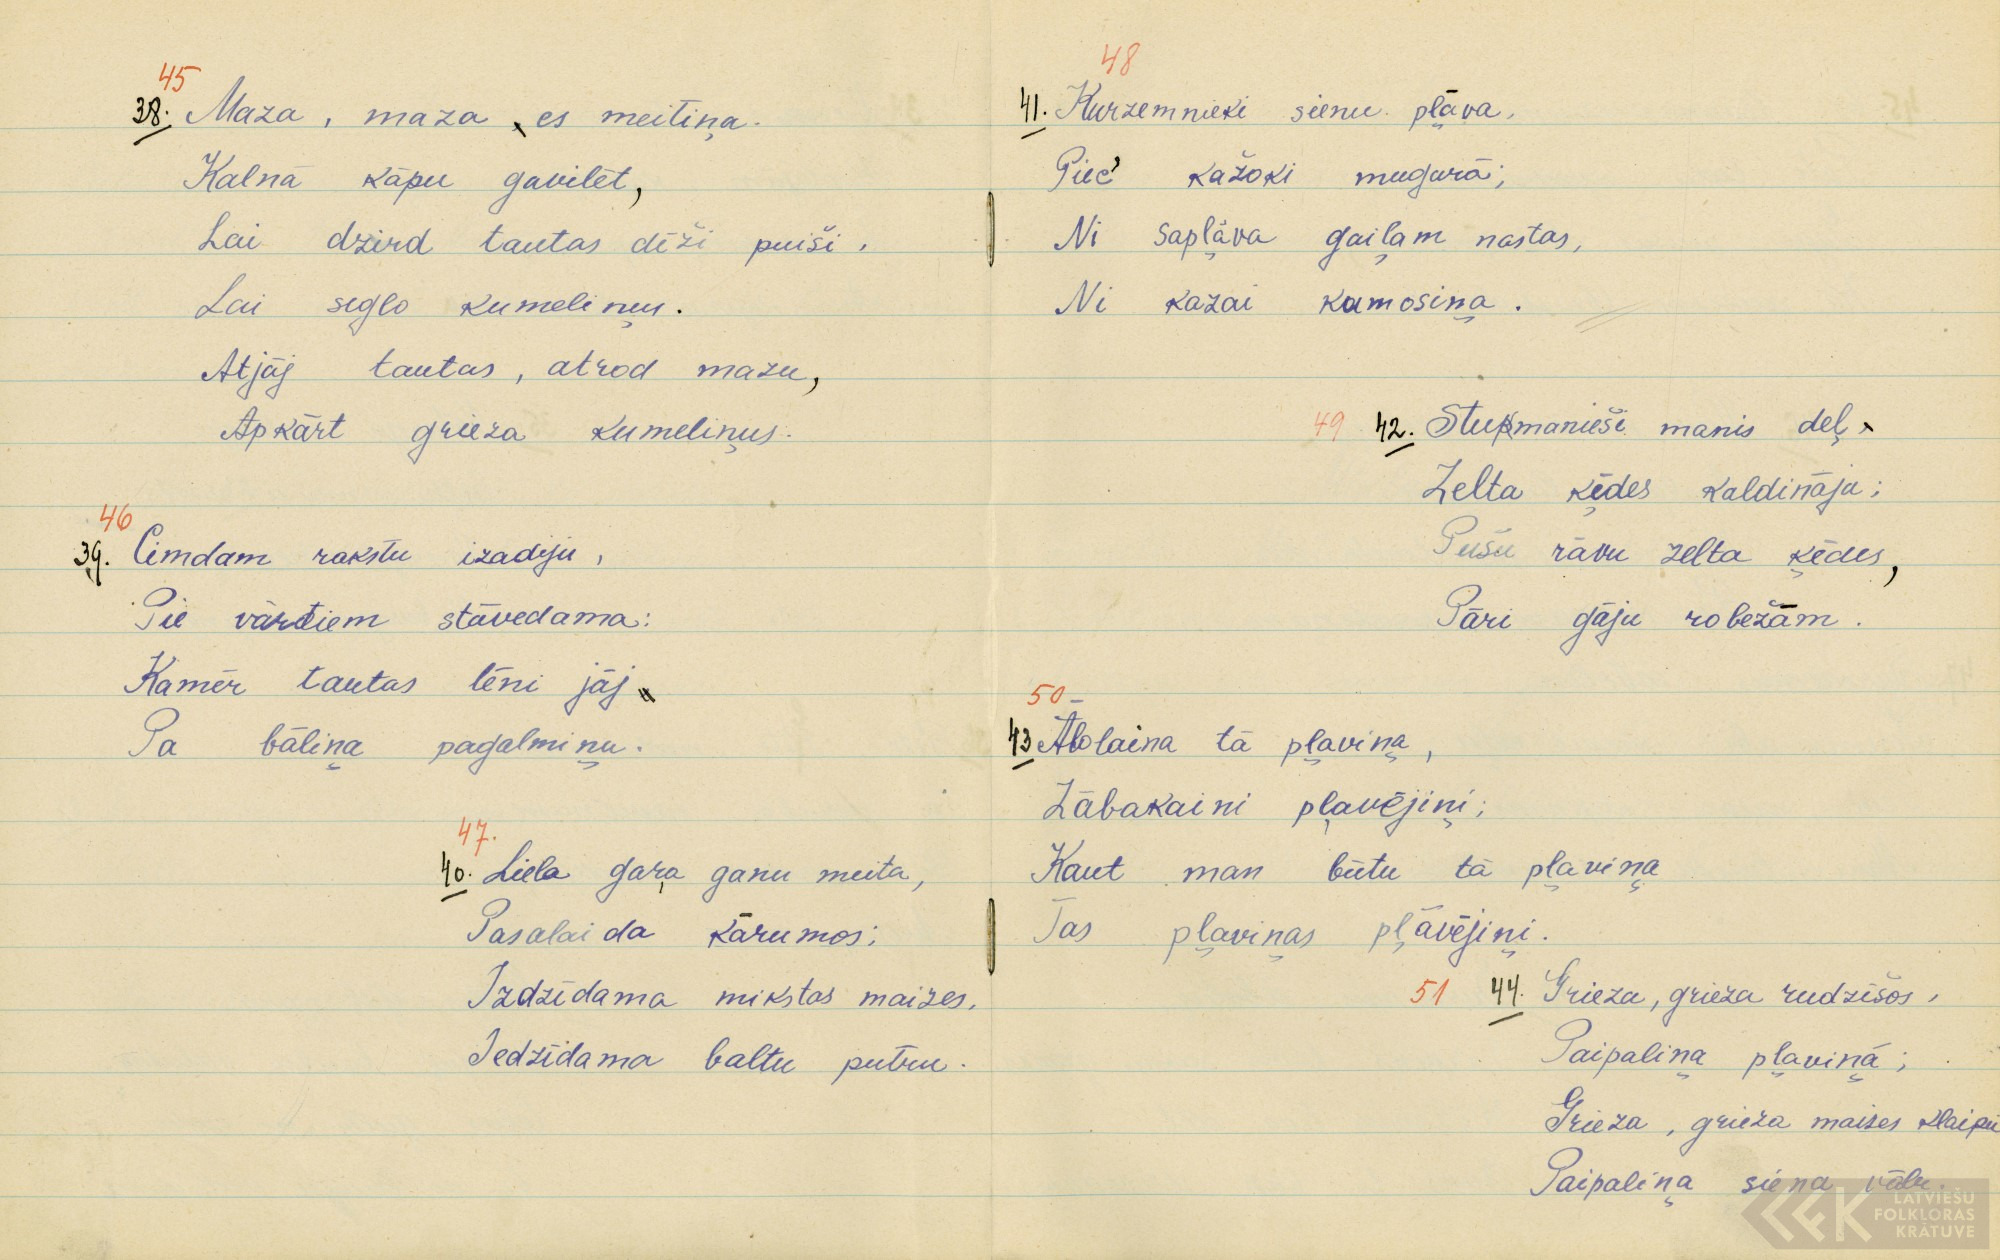 45
38. Maza, maza es meitiņa.
Kalnā kāpu gavilēt,
Lai dzird tautas dīži puiši,
Lai seglo kumeliņus.
Atjāj tautas, atrod mazu,
Apkārt grieza kumeliņus.
46
39. Cimdam rakstu izadiju,
Pie vārtiem stāvedama:
Kamēr tautas lēni jāj
Pa bāliņa pagalmiņu.
47.
40. Liela gaŗa ganu meita,
Pasalaida kārumos;
Izdzīdama mikstas maizes,
Iedzīdama baltu putru.
48
41. Kurzemnieki sienu pļāva,
Piec' kažoki mugurā;
Ni sapļāva gaiļam nastas,
Ni kazai kumosiņa.
49
42. Stukmanieši manis deļ
Zelta ķēdes kaldināja;
Pušu rāvu zelta ķēdes,
Pāri gāju robežām.
50
43 Āb̄olaina tā pļaviņa,
Zābakaini pļavējiņi;
Kaut man būtu tā pļaviņa
Tas pļaviņas pļāvējiņi.
51
44. Grieza, grieza rudzīšos,
Paipaliņa pļaviņā;
Grieza, grieza maizes klaipu
Paipaliņa siena vālu.
LATVIEŠU
FOLKLORAS
KRĀTUVE